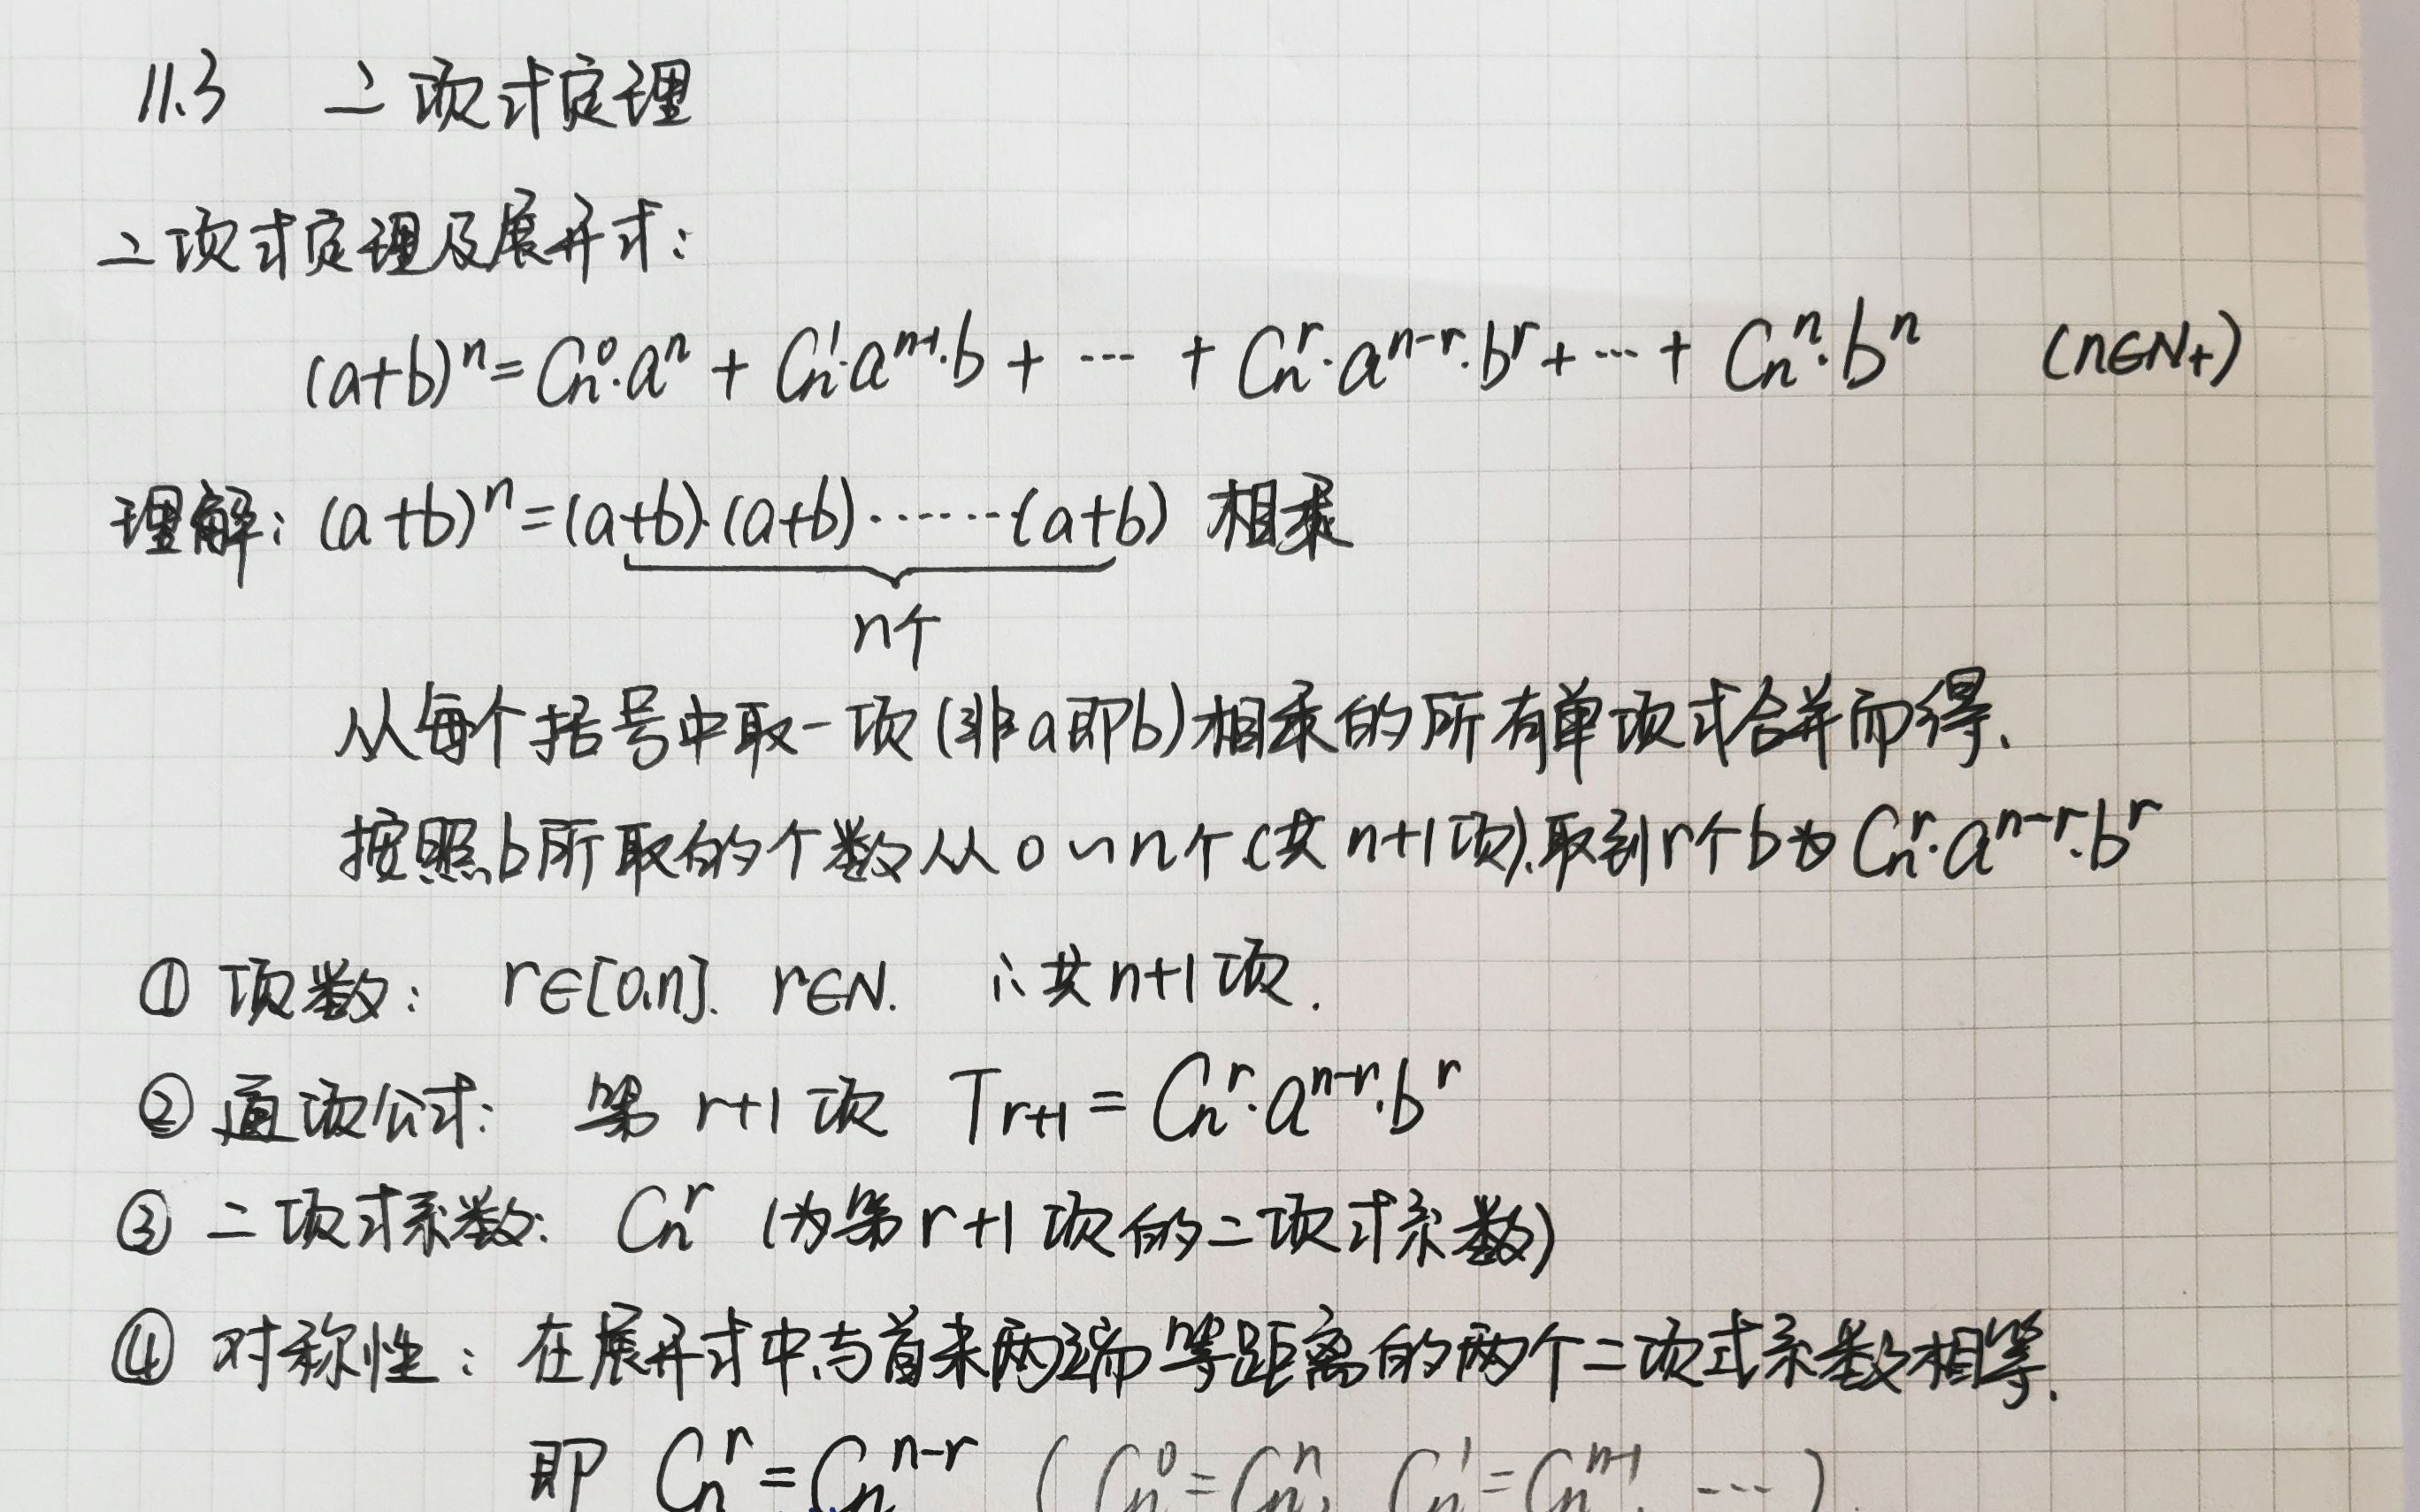 11.3 二项式定理
二项式定理及展开式:
(a+b)ⁿ=Cₙ⁰·aⁿ + Cₙ¹·aⁿ⁻¹·b + ··· + Cₙʳ·aⁿ⁻ʳ·bʳ+···+ Cₙⁿ·bⁿ (n∈N₊)
理解: (a+b)ⁿ=(a+b)·(a+b)·······(a+b) 相乘
n个
从每个括号中取一项(非a即b)相乘的所有单项式合并而得.
按照b所取的个数从0~n个(共n+1项),取到r个b为Cₙʳ·aⁿ⁻ʳ·bʳ
① 项数: r∈[0,n]. r∈N. ∴共n+1项.
② 通项公式: 第r+1项 Tᵣ₊₁=Cₙʳ·aⁿ⁻ʳ·bʳ
③ 二项式系数: Cₙʳ (为第r+1项的二项式系数)
④ 对称性: 在展开式中,与首末两端等距离的两个二项式系数相等.
即 Cₙʳ=Cₙⁿ⁻ʳ (Cₙ⁰=Cₙⁿ, Cₙ¹=Cₙⁿ⁻¹, ···).